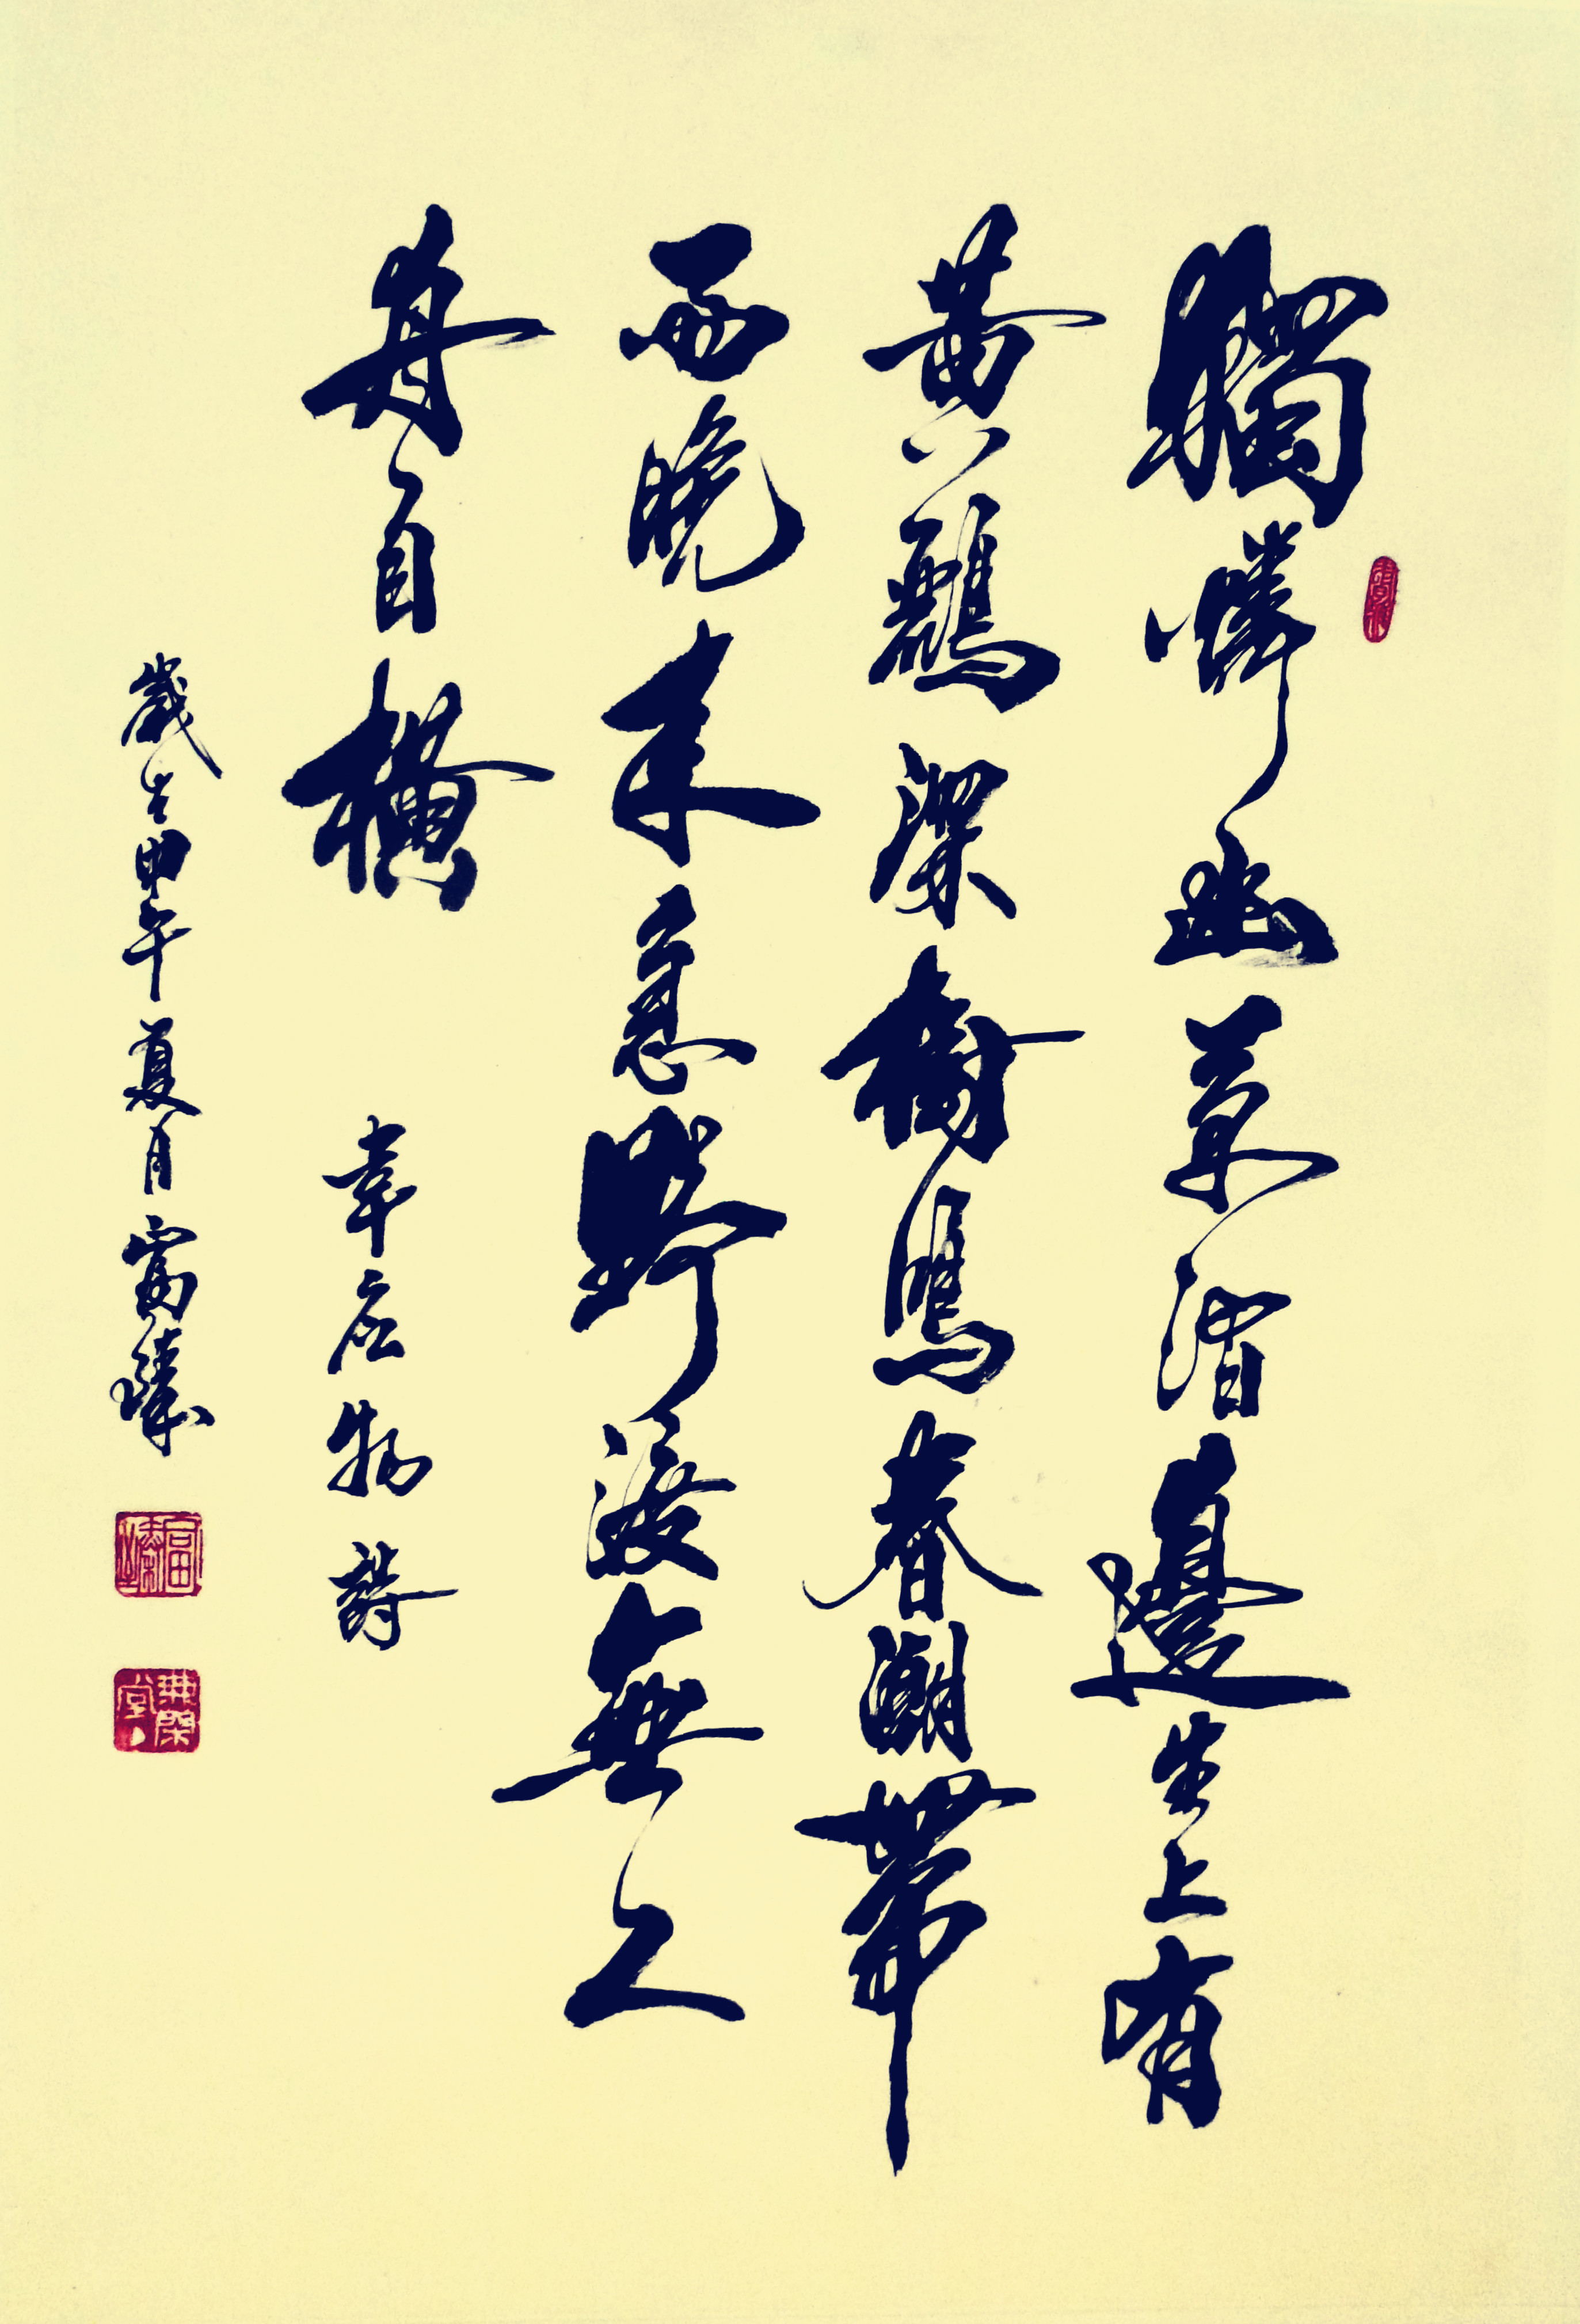 獨憐幽草澗邊生上有
黃鸝深樹鳴春潮帶
雨晚來急野渡無人
舟自橫 韋應物詩
歲甲午夏月富臻
富臻